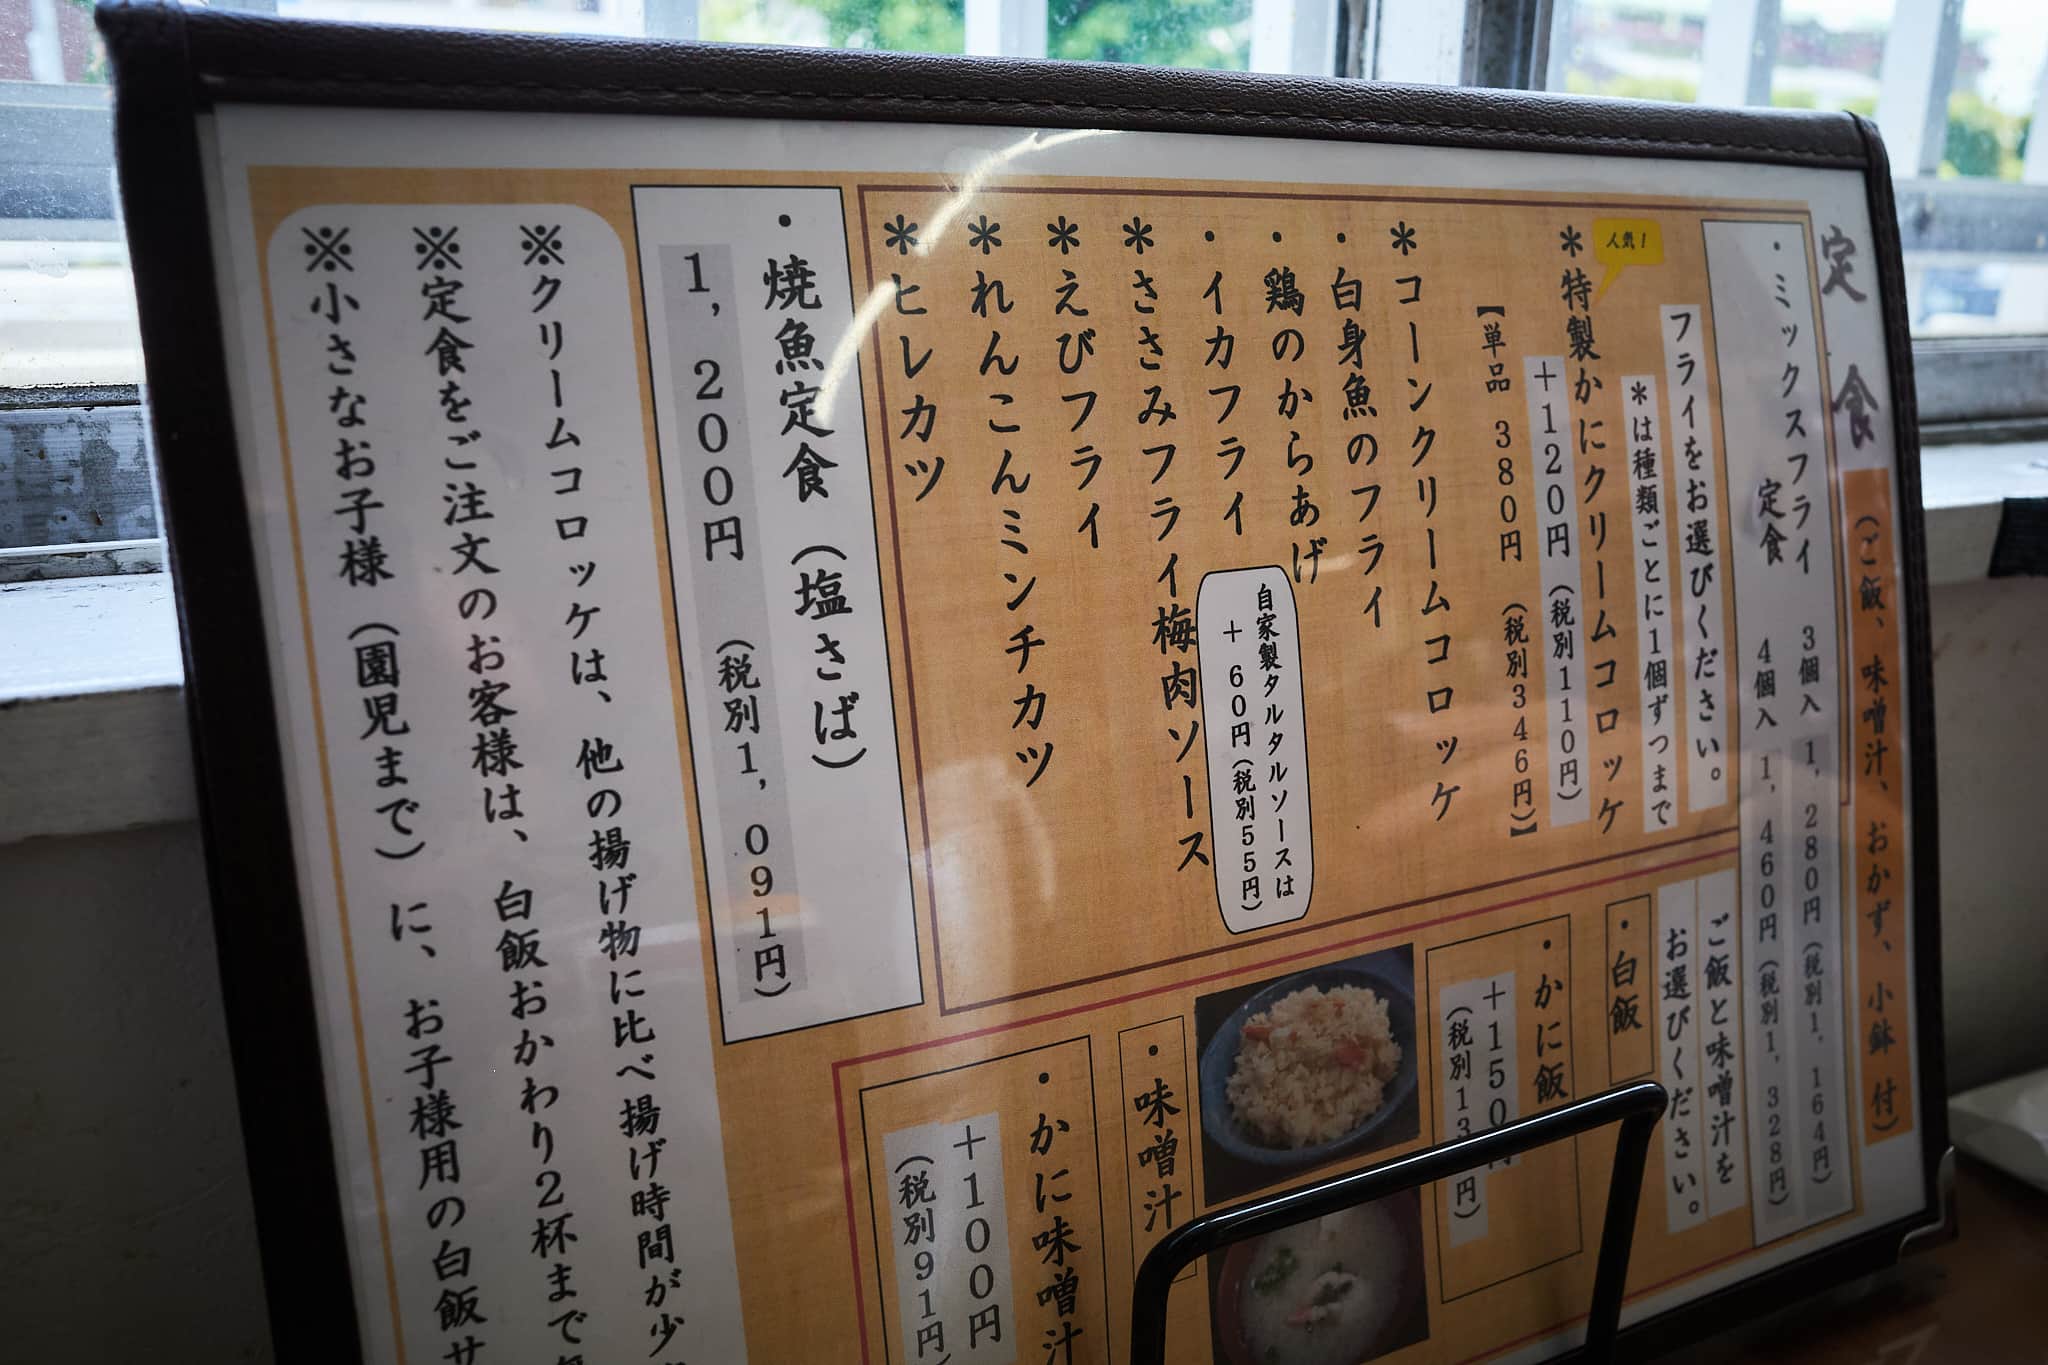 定食（ご飯、味噌汁、おかず、小鉢 付）
・ミックスフライ 3個入 1,280円（税別1,164円）
定食 4個入 1,460円（税別1,328円）
フライをお選びください。
*は種類ごとに1個ずつまで
人気！
*特製かにクリームコロッケ
+120円（税別110円）
【単品 380円 （税別346円）】
*コーンクリームコロッケ
・白身魚のフライ
・鶏のからあげ
・イカフライ
自家製タルタルソースは
+ 60円（税別55円）
*ささみフライ梅肉ソース
*えびフライ
*れんこんミンチカツ
*ヒレカツ
ご飯と味噌汁を
お選びください。
・白飯
・かに飯
+150円
（税別13 円）
・味噌汁
・かに味噌汁
+100円
（税別91円
・焼魚定食（塩さば）
1,200円 （税別1,091円）
※クリームコロッケは、他の揚げ物に比べ揚げ時間が少
※定食をご注文のお客様は、白飯おかわり2杯まで
※小さなお子様（園児まで）に、お子様用の白飯サ